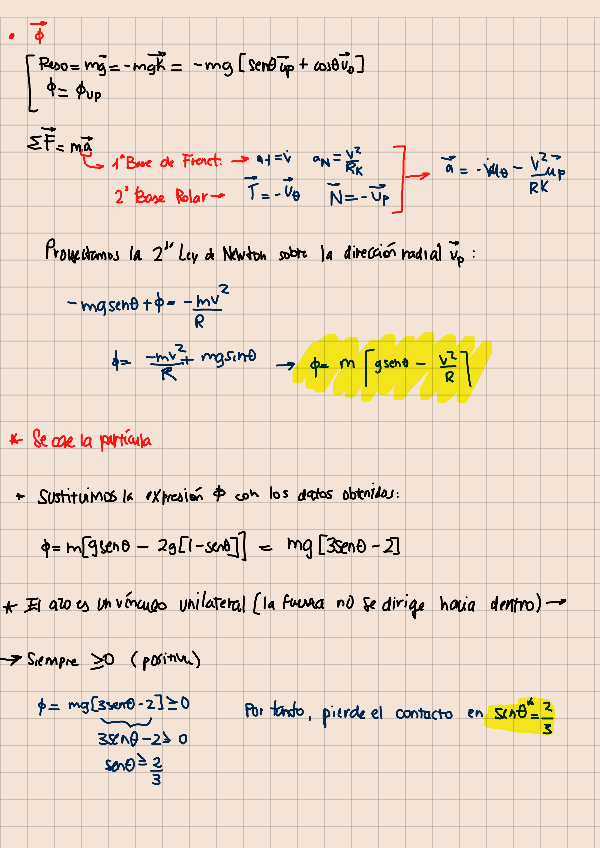 • $\vec{\phi}$
Peso = $m\vec{g}$ = $-mg\vec{K}$ = $-mg[sen\theta\,\vec{u_p} + cos\theta\,\vec{u_\theta}]$
$\phi = \phi_{up}$
$\Sigma\vec{F} = m\vec{a}$
1ª Base de Frenet: → $a_t = \dot{v}$ $a_N = \frac{v^2}{R_K}$
→ $\vec{a} = -\dot{v}\mu_\theta - \frac{v^2}{RK}\vec{\mu_p}$
2ª Base Polar → $\vec{T} = -\vec{u_\theta}$ $\vec{N} = -\vec{u_p}$
Proyectamos la 2ª Ley de Newton sobre la dirección radial $\vec{u_p}$:
$-mg\,sen\theta + \phi = \frac{-mv^2}{R}$
$\phi = \frac{-mv^2}{R} + mg\,sin\theta$ → $\phi = m\left[g\,sen\theta - \frac{v^2}{R}\right]$
* Se cae la partícula
+ Sustituimos la expresión $\phi$ con los datos obtenidos:
$\phi = m[g\,sen\theta - 2g[1-sen\theta]] = mg[3sen\theta - 2]$
* El aro es un vínculo unilateral (la fuerza no se dirige hacia dentro) →
→ Siempre ≥0 (positiva)
$\phi = mg[3sen\theta - 2] \geq 0$ Por tanto, pierde el contacto en $sen\theta^* = \frac{2}{3}$
$3sen\theta - 2 \geq 0$
$sen\theta \geq \frac{2}{3}$